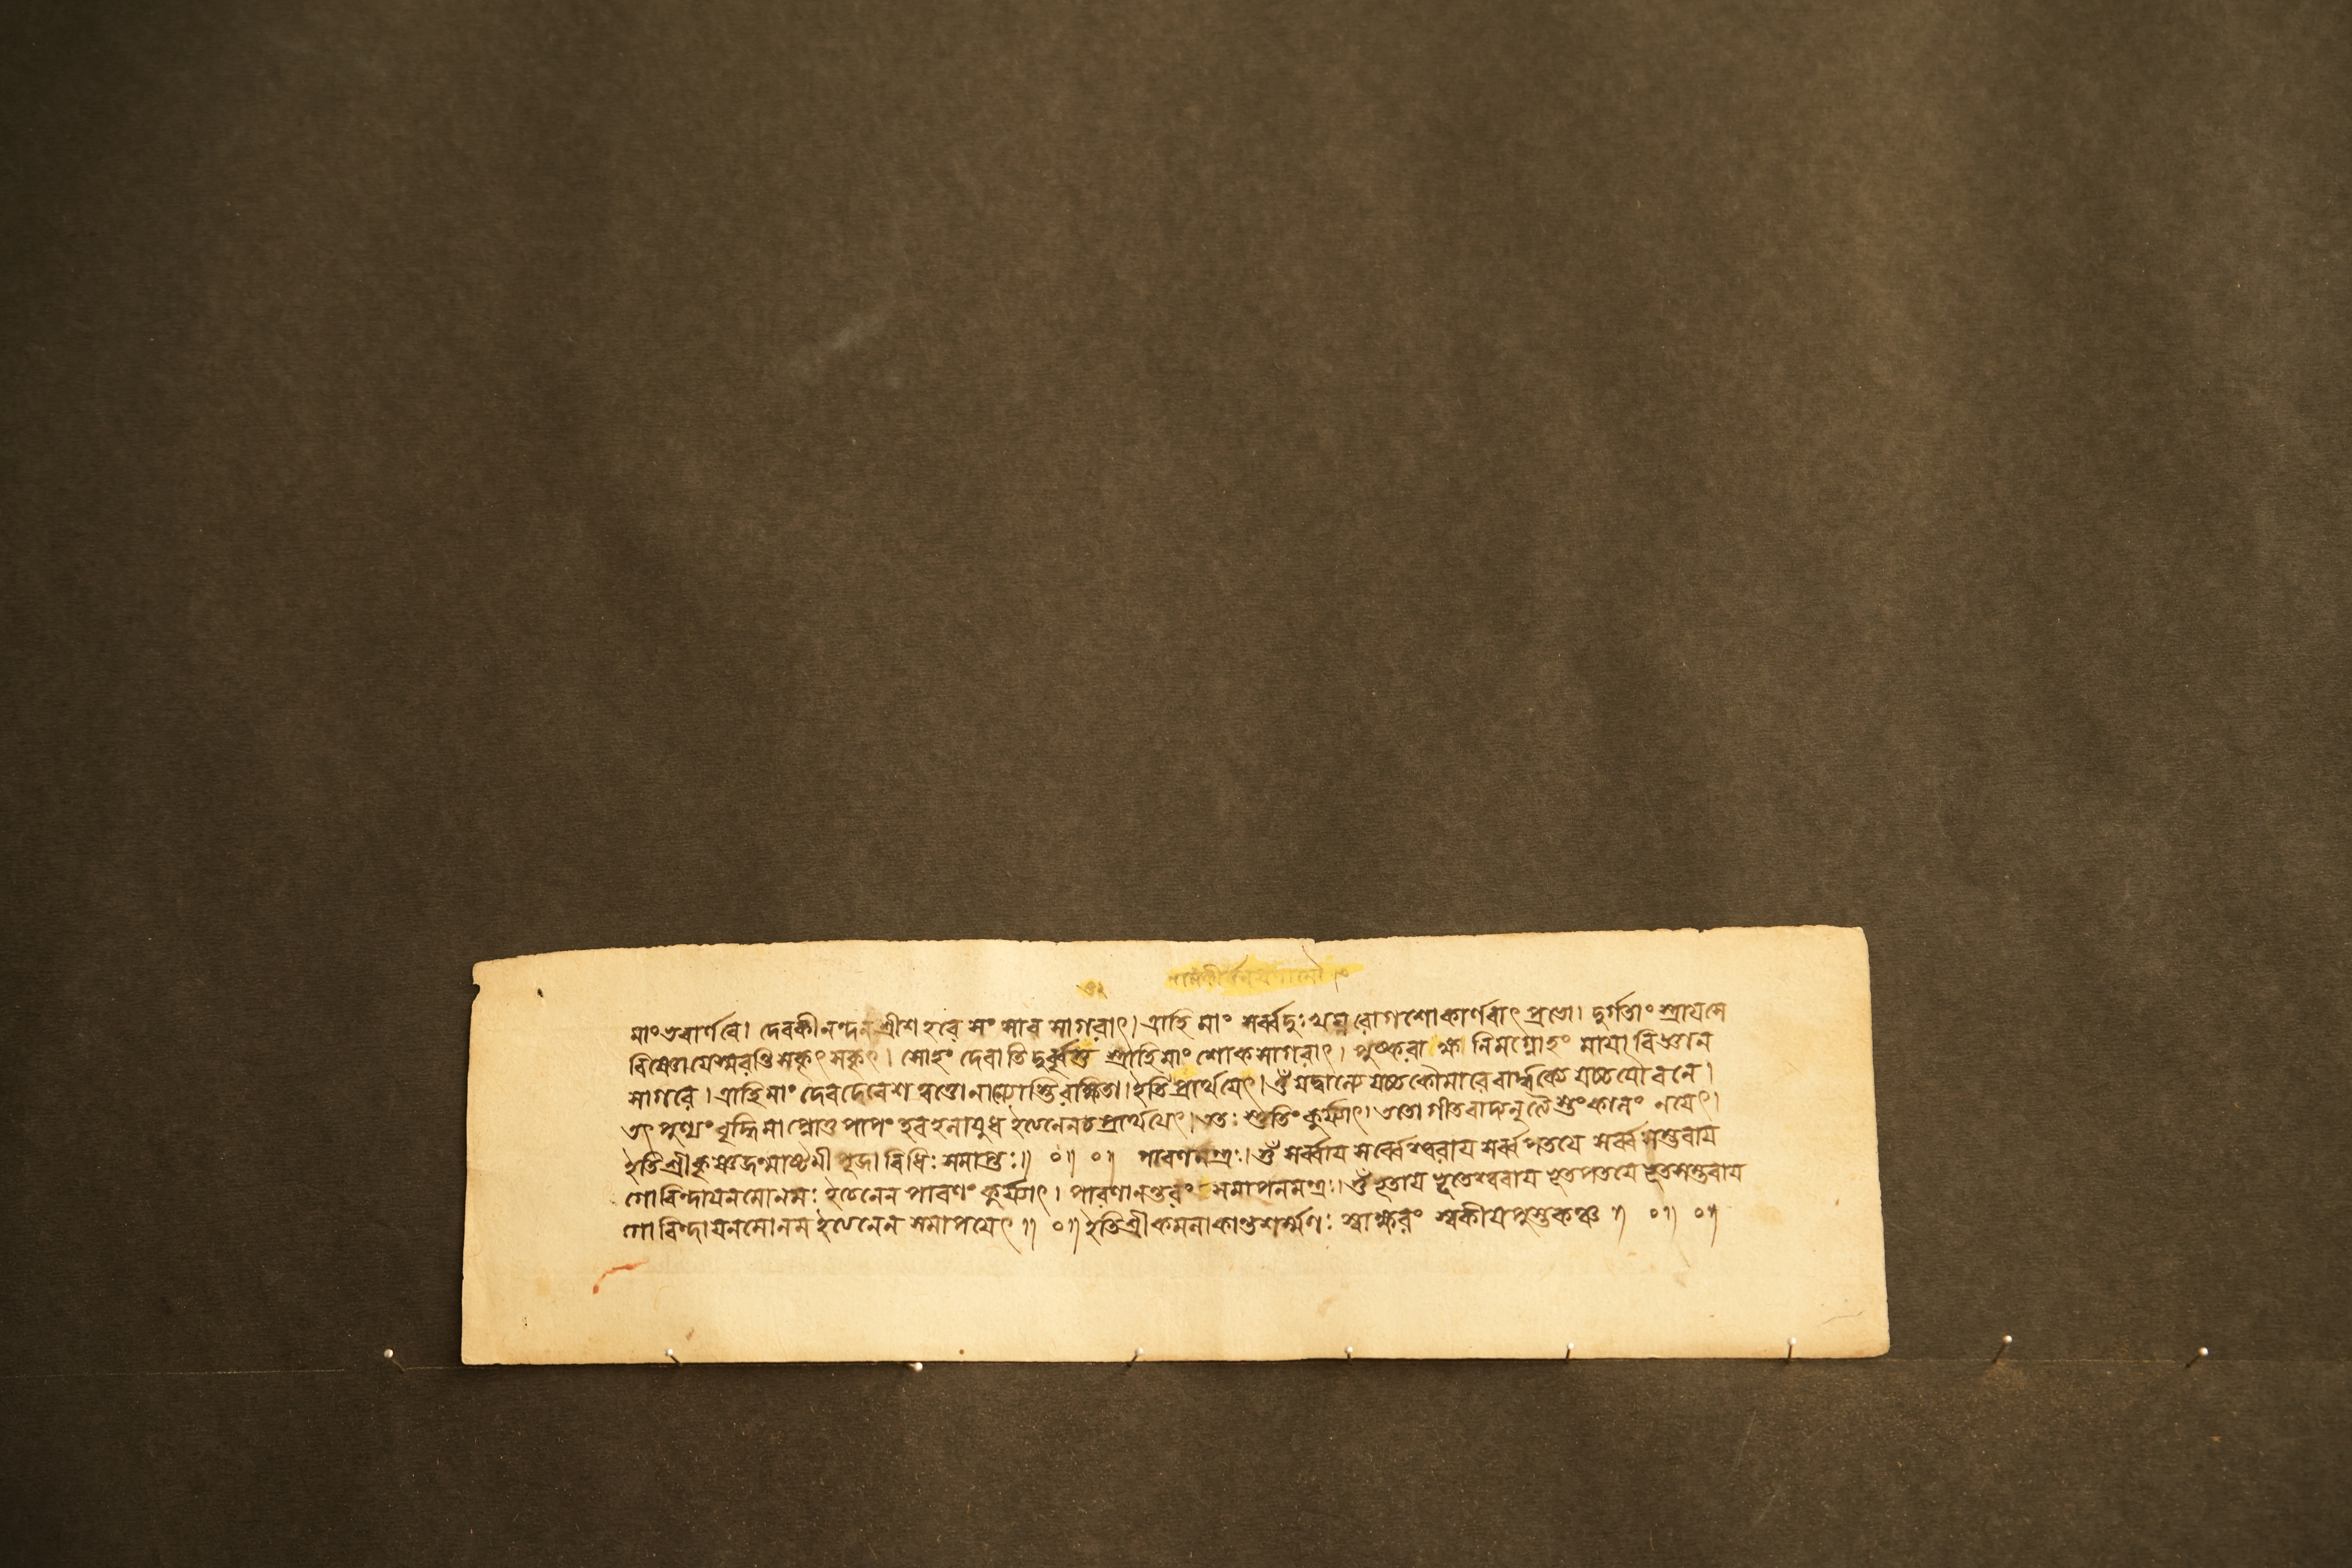 মাং ভবার্ণবে। দেবকীনন্দন শ্রীশ হরে সংসার সাগরাৎ। ত্রাহি মাং সর্ব্বদুঃখঘ্ন রোগশোকার্ণবাৎ প্রভো। দুর্গতাং স্ত্রায়সে
বিষ্ণো যে স্মরন্তি সকৃৎ সকৃৎ। সোহং দেবাতি দুর্বৃত্ত স্ত্রাহি মাং শোকসাগরাৎ। পুষ্করাক্ষ নিমগ্নোহং মায়া বিজ্ঞান
সাগরে। ত্রাহি মাং দেবদেবেশ ত্বত্তো নান্যোস্তি রক্ষিতা। ইতি প্রার্থয়েৎ। ওঁ যদ্বাল্যে যচ্চ কৌমারে বার্দ্ধক্যে যচ্চ যৌবনে।
তৎ পুণ্যং বৃদ্ধিমাপ্নোতু পাপং হর হলায়ুধ ইত্যনেন চ প্রার্থয়েৎ। ততঃ স্তুতিং কুর্য্যাৎ। ততো গীতবাদ্যনৃত্যৈ স্তং কালং নয়েৎ।
ইতি শ্রীকৃষ্ণজন্মাষ্টমী পূজা বিধিঃ সমাপ্তঃ॥ ০॥ ০॥ পারণমন্ত্রঃ। ওঁ সর্ব্বায় সর্ব্বেশ্বরায় সর্ব্বপতয়ে সর্ব্বসম্ভবায়
গোবিন্দায় নমোনমঃ ইত্যনেন পারণং কুর্য্যাৎ। পারণানন্তরং সমাপনমন্ত্রঃ। ওঁ ভূতায় ভূতেশ্বরায় ভূতপতয়ে ভূতসম্ভবায়
গোবিন্দায় নমোনম ইত্যনেন সমাপয়েৎ॥ ০॥ ইতি শ্রীকমলাকান্তশর্ম্মণঃ স্বাক্ষরং স্বকীয়পুস্তকঞ্চ॥ ০॥ ০॥